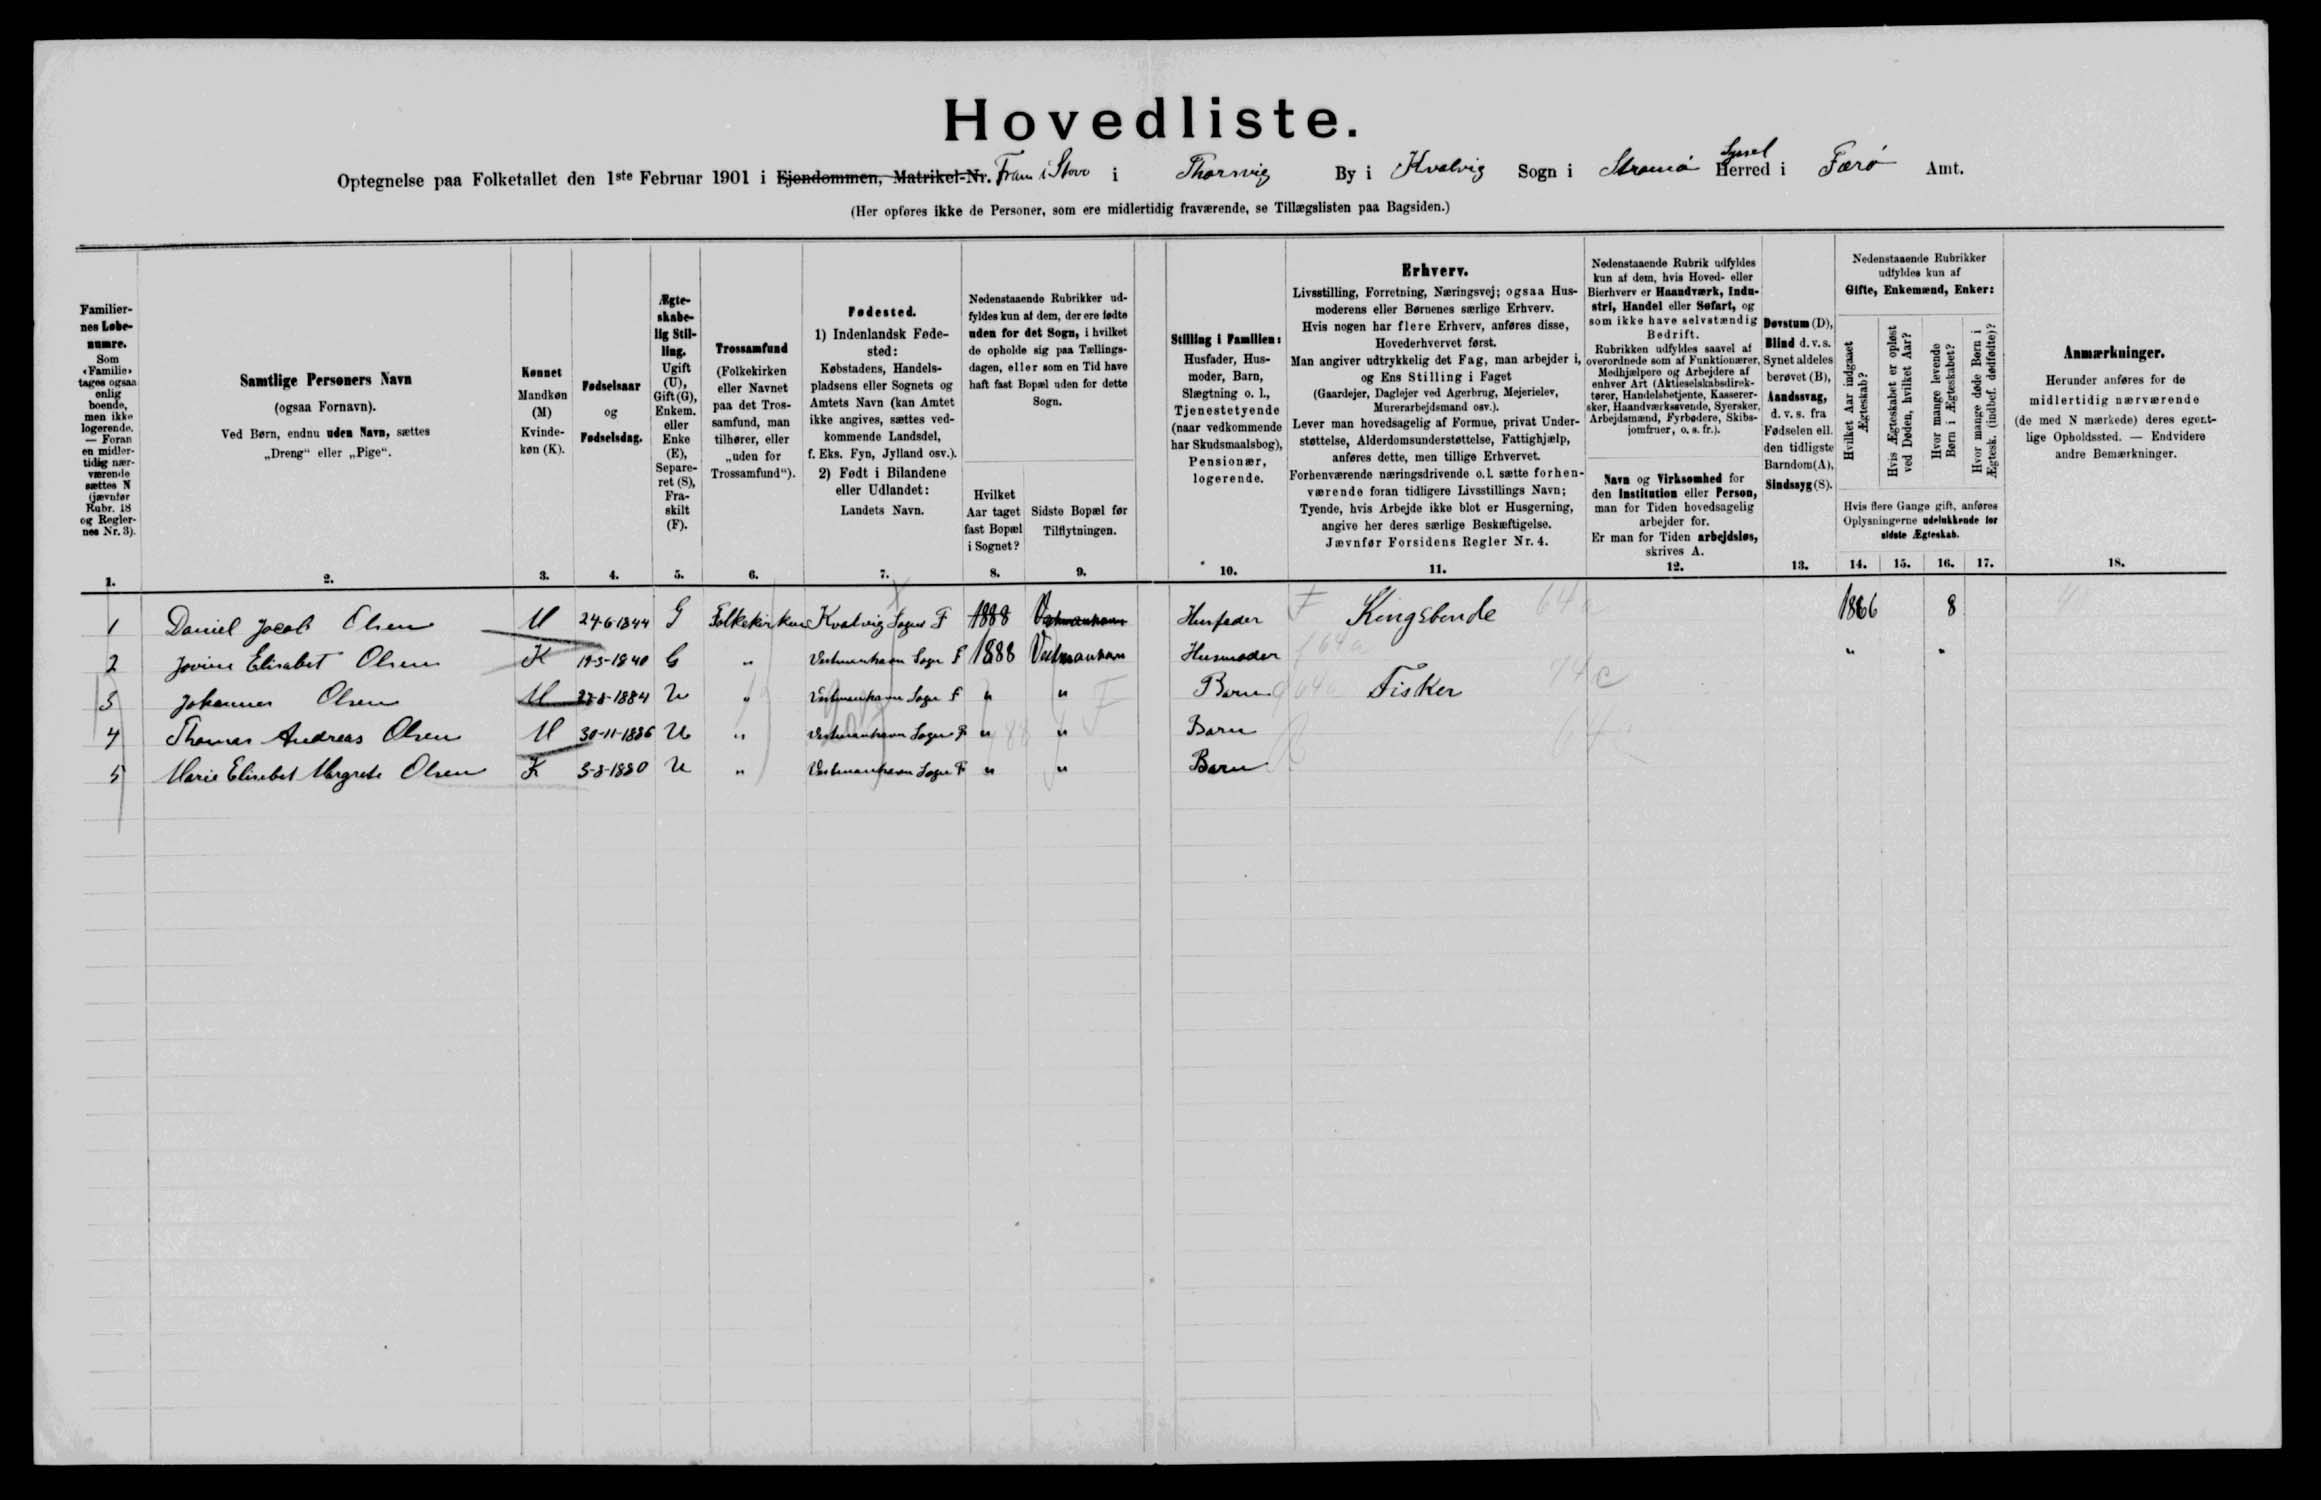 Hovedliste.
Optegnelse paa Folketallet den 1ste Februar 1901 i Ejendommen, Matrikel-Nr. Fram i Stovo i Thorsvig By i Kvalvig Sogn i Stromö Herred Syssel i Færö Amt.
(Her opføres ikke de Personer, som ere midlertidig fraværende, se Tillægslisten paa Bagsiden.)
Familiernes Løbenumre.
Som «Familie» tages ogsaa enlig boende, men ikke logerende. — Foran en midlertidig nærværende sættes N (jævnfør Rubr. 18 og Reglernes Nr. 3).
1.
Samtlige Personers Navn
(ogsaa Fornavn).
Ved Børn, endnu uden Navn, sættes
„Dreng“ eller „Pige“.
2.
Kønnet
Mandkøn (M)
Kvindekøn (K).
3.
Fødselsaar
og
Fødselsdag.
4.
Ægteskabelig Stilling.
Ugift (U), Gift (G), Enkem. eller Enke (E), Separeret (S), Fraskilt (F).
5.
Trossamfund
(Folkekirken eller Navnet paa det Trossamfund, man tilhører, eller „uden for Trossamfund“).
6.
Fødested.
1) Indenlandsk Fødested:
Købstadens, Handelspladsens eller Sognets og Amtets Navn (kan Amtet ikke angives, sættes vedkommende Landsdel, f. Eks. Fyn, Jylland osv.).
2) Født i Bilandene eller Udlandet:
Landets Navn.
7.
Nedenstaaende Rubrikker udfyldes kun af dem, der ere fødte uden for det Sogn, i hvilket de opholde sig paa Tællingsdagen, eller som en Tid have haft fast Bopæl uden for dette Sogn.
Hvilket Aar taget fast Bopæl i Sognet?
8.
Sidste Bopæl før Tilflytningen.
9.
Stilling i Familien:
Husfader, Husmoder, Barn, Slægtning o. l., Tjenestetyende (naar vedkommende har Skudsmaalsbog), Pensionær, logerende.
10.
Erhverv.
Livsstilling, Forretning, Næringsvej; ogsaa Husmoderens eller Børnenes særlige Erhverv.
Hvis nogen har flere Erhverv, anføres disse, Hovederhvervet først.
Man angiver udtrykkelig det Fag, man arbejder i, og Ens Stilling i Faget
(Gaardejer, Daglejer ved Agerbrug, Mejerielev, Murerarbejdsmand osv.).
Lever man hovedsagelig af Formue, privat Understøttelse, Alderdomsunderstøttelse, Fattighjælp, anføres dette, men tillige Erhvervet.
Forhenværende næringsdrivende o.l. sætte forhenværende foran tidligere Livsstillings Navn; Tyende, hvis Arbejde ikke blot er Husgerning, angive her deres særlige Beskæftigelse.
Jævnfør Forsidens Regler Nr. 4.
11.
Nedenstaaende Rubrik udfyldes kun af dem, hvis Hoved- eller Bierhverv er Haandværk, Industri, Handel eller Søfart, og som ikke have selvstændig Bedrift.
Rubrikken udfyldes saavel af overordnede som af Funktionærer, Medhjælpere og Arbejdere af enhver Art (Aktieselskabsdirektører, Handelsbetjente, Kasserersker, Haandværkssvende, Syersker, Arbejdsmænd, Fyrbødere, Skibsjomfruer, o. s. fr.).
Navn og Virksomhed for den Institution eller Person, man for Tiden hovedsagelig arbejder for.
Er man for Tiden arbejdsløs, skrives A.
12.
Døvstum (D), Blind d. v. s. Synet aldeles berøvet (B), Aandssvag, d. v. s. fra Fødselen ell. den tidligste Barndom (A), Sindssyg (S).
13.
Nedenstaaende Rubrikker udfyldes kun af
Gifte, Enkemænd, Enker:
Hvilket Aar indgaaet Ægteskab?
Hvis Ægteskabet er opløst ved Døden, hvilket Aar?
Hvor mange levende Børn i Ægteskabet?
Hvor mange døde Børn i Ægtesk. (indbef. dødfødte)?
Hvis flere Gange gift, anføres Oplysningerne udelukkende for sidste Ægteskab.
14. 15. 16. 17.
Anmærkninger.
Herunder anføres for de midlertidig nærværende (de med N mærkede) deres egentlige Opholdssted. — Endvidere andre Bemærkninger.
18.
1 Daniel Jacob Olsen M 24-6-1844 G Folkekirken Kvalvig Sogn F 1888 Vestmanhavn Husfader F Kongsbonde 64a 1866 8
2 Jovine Elisabet Olsen K 19-3-1840 G " Vestmanhavn Sogn F 1888 Vestmanhavn Husmoder 64a " "
3 Johannes Olsen M 27-8-1884 U " Vestmanhavn Sogn F " " Barn 64a Fisker 74c
4 Thomas Andreas Olsen M 30-11-1886 U " Vestmanhavn Sogn F " " Barn
5 Marie Elisabet Margrete Olsen K 3-8-1880 U " Vestmanhavn Sogn F " " Barn